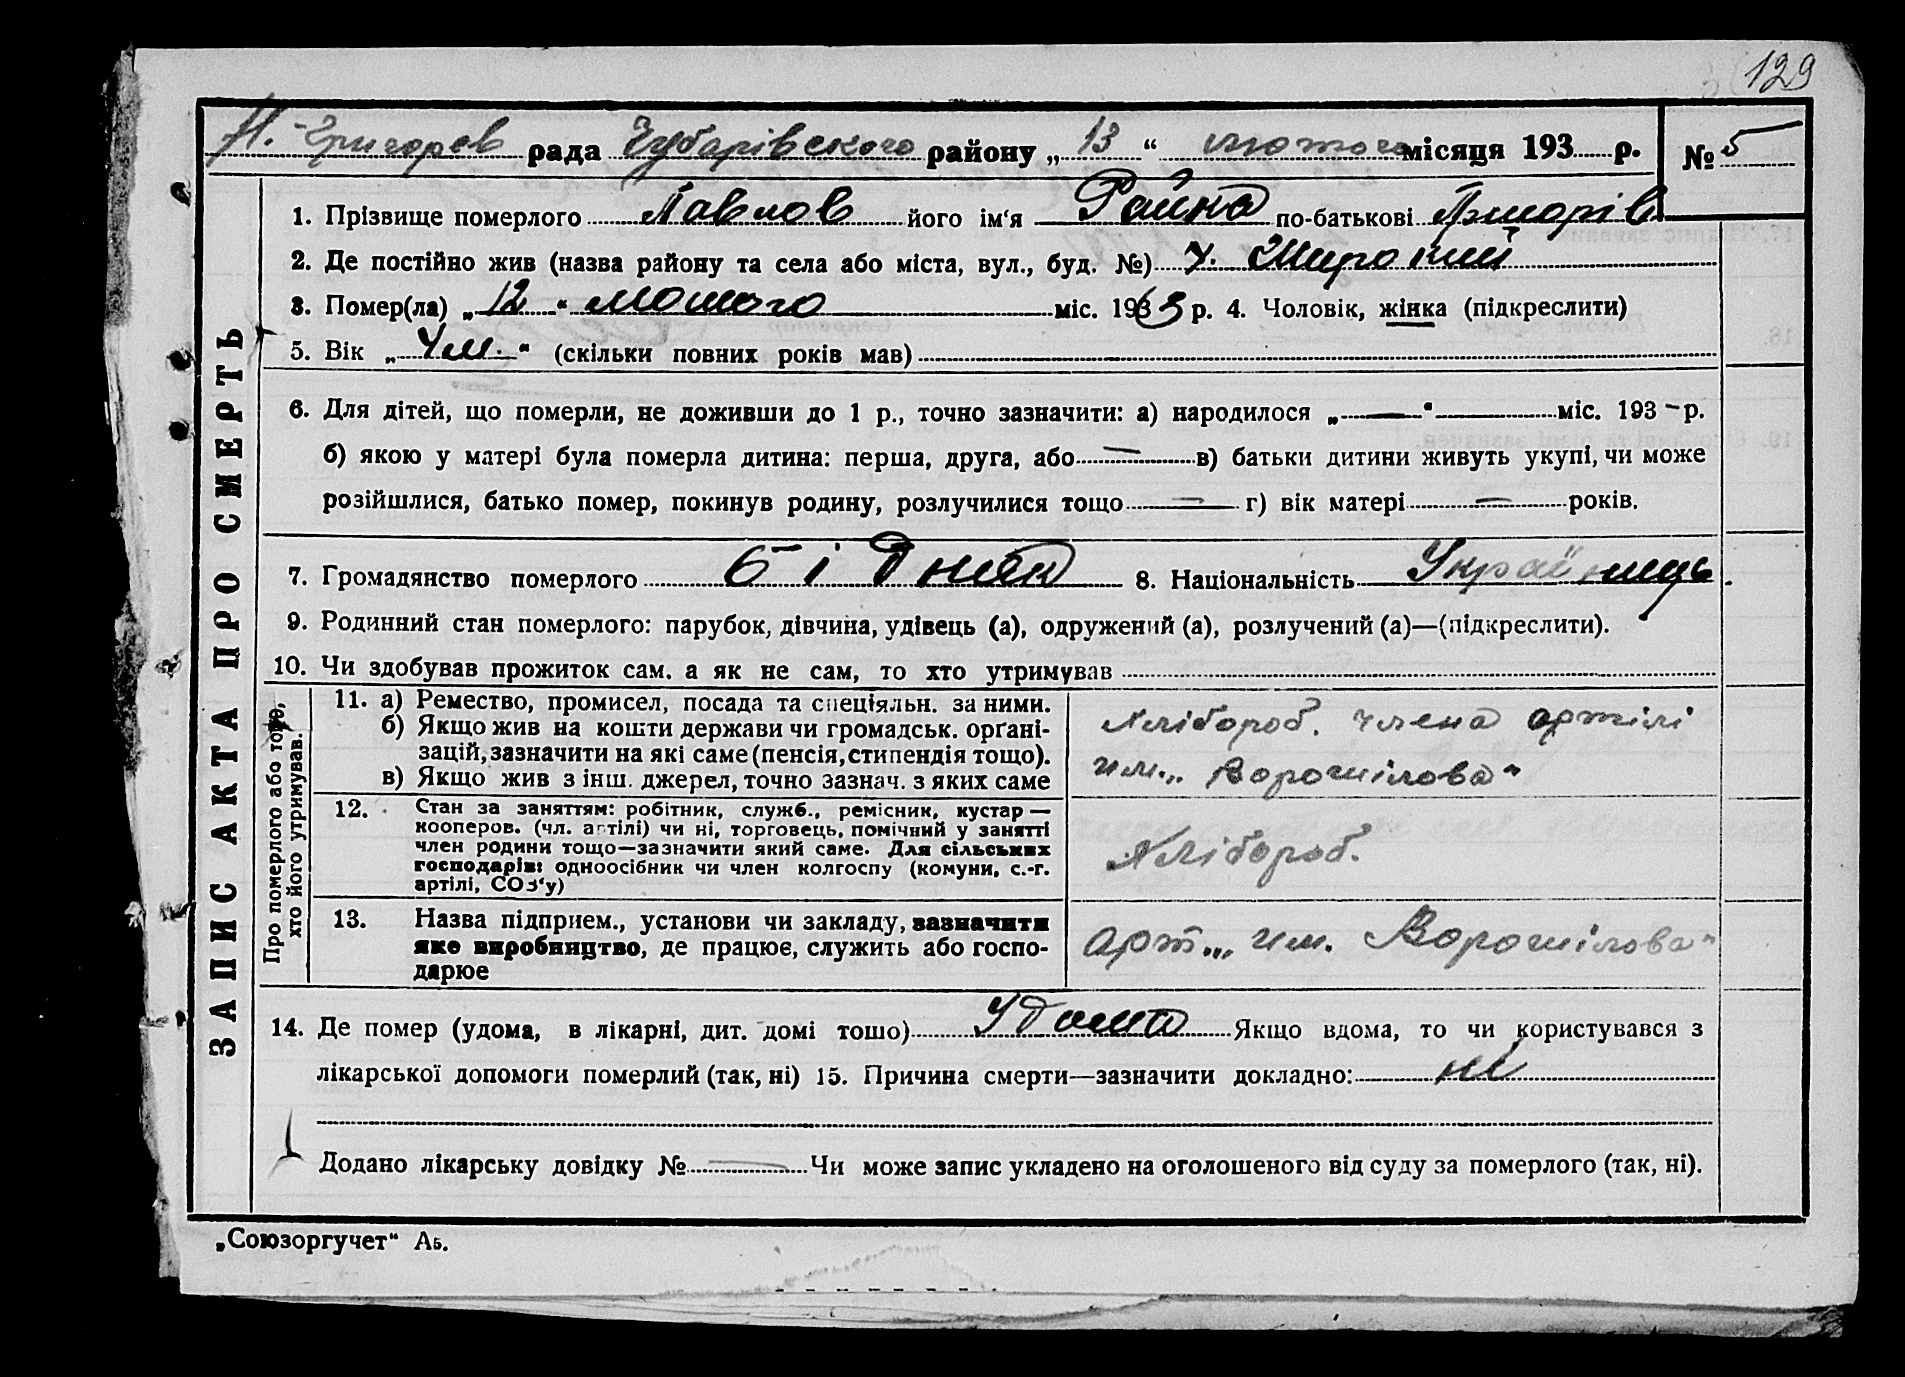 129
Н. Григорев рада Чубарівського району „ 13 “ лютого місяця 193 р. № 5
ЗАПИС АКТА ПРО СМЕРТЬ
1. Прізвище померлого Павлов його ім‘я Раїна по-батькові
2. Де постійно жив (назва району та села або міста, вул., буд. №) х. Широкий
3. Помер(ла) „ 12 “ лютого міс. 1933 р. 4. Чоловік, жінка (підкреслити)
5. Вік „ 4 м. “ (скільки повних років мав)
6. Для дітей, що померли, не доживши до 1 р., точно зазначити: а) народилося „ — “ — міс. 193 – р.
б) якою у матері була померла дитина: перша, друга, або — в) батьки дитини живуть укупі, чи може
розійшлися, батько помер, покинув родину, розлучилися тощо — г) вік матері — років.
7. Громадянство померлого бідняк 8. Національність Українець
9. Родинний стан померлого: парубок, дівчина, удівець (а), одружений (а), розлучений (а)—(підкреслити).
10. Чи здобував прожиток сам. а як не сам, то хто утримував
Про померлого або того, хто його утримував.
11. а) Ремество, промисел, посада та спеціяльн. за ними.
б) Якщо жив на кошти держави чи громадськ. орґані-
зацій, зазначити на які саме (пенсія, стипендія тощо).
в) Якщо жив з інш. джерел, точно зазнач. з яких саме
Хлібороб. члена артілі
им. „ Ворошілова“
12. Стан за заняттям: робітник, служб., ремісник, кустар —
кооперов. (чл. артілі) чи ні, торговець, помічний у занятті
член родини тощо—зазначити який саме. Для сільських
господарів: одноосібник чи член колгоспу (комуни, с.-г.
артілі, СОЗ‘у)
Хлібороб.
13. Назва підприєм., установи чи закладу, зазначити
яке виробництво, де працює, служить або госпо-
дарює
арт. „ им. Ворошілова“
14. Де помер (удома, в лікарні, дит. домі тошо) Удома Якщо вдома, то чи користувався з
лікарської допомоги померлий (так, ні) 15. Причина смерти—зазначити докладно: ні
Додано лікарську довідку № — Чи може запис укладено на оголошеного від суду за померлого (так, ні).
„Союзоргучет“ Аб.